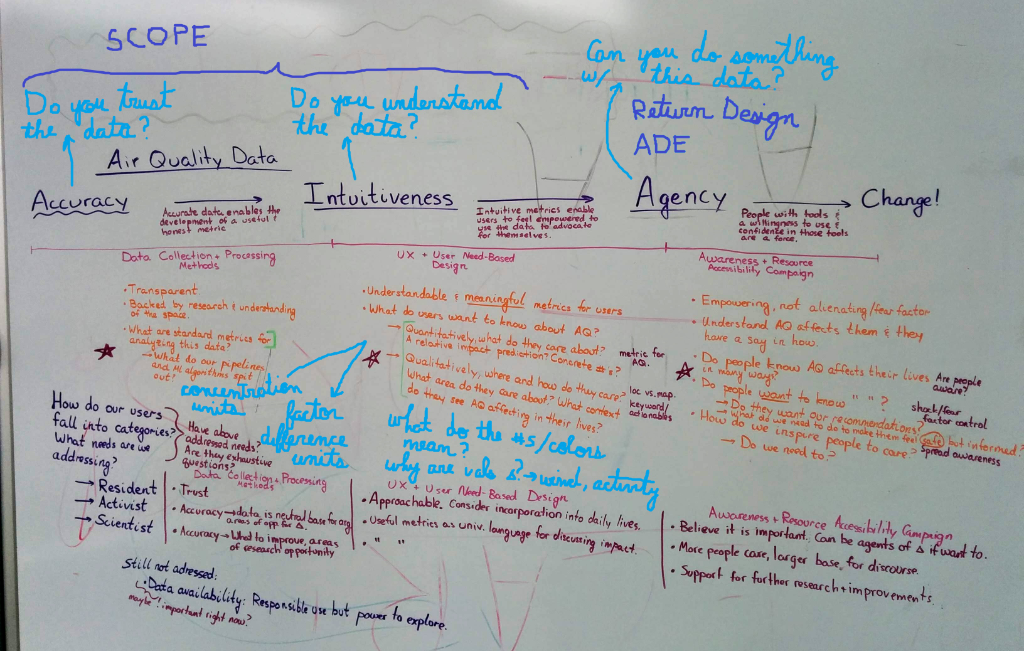 SCOPE
Do you trust
the data?
Do you understand
the data?
Can you do something
w/ this data?
Return Design
ADE
Air Quality Data
Accuracy
Accurate data enables the
development of a useful &
honest metric
Intuitiveness
Intuitive metrics enable
users to feel empowered to
use the data to advocate
for themselves.
Agency
People with tools &
a willingness to use &
confidence in those tools
are a force.
Change!
Data Collection + Processing
Methods
UX + User Need-Based
Design
Awareness + Resource
Accessibility Campaign
• Transparent
• Backed by research & understanding
of the space.
• What are standard metrics for
analyzing this data?
→ What do our pipelines,
and ML algorithms spit
out?
concentration
units
factor
difference
units
• Understandable & meaningful metrics for users
• What do users want to know about AQ?
→ Quantitatively, what do they care about?
A relative impact prediction? Concrete #'s?
→ Qualitatively, where and how do they care?
What area do they care about? What context
do they see AQ affecting in their lives?
metric for
AQ.
loc vs. map.
keyword/
actionables
what do the #s/colors
mean?
why are vals Δ? → wind, activity
• Empowering, not alienating/fear factor
• Understand AQ affects them & they
have a say in how.
• Do people know AQ affects their lives
in many ways?
Are people
aware?
• Do people want to know " " ?
→ Do they want our recommendations?
→ What do we need to do to make them feel safe but informed?
shock/fear
factor control
• How do we inspire people to care?
Spread awareness
→ Do we need to?
How do our users
fall into categories?
What needs are we
addressing?
Have above
addressed needs?
Are they exhaustive
questions?
→ Resident
→ Activist
→ Scientist
Data Collection + Processing
Methods
• Trust
• Accuracy → data is neutral base for arg
areas of opp for Δ.
• Accuracy → What to improve, areas
of research opportunity
UX + User Need-Based Design
• Approachable. Consider incorporation into daily lives.
• Useful metrics as univ. language for discussing impact.
• " "
Awareness + Resource Accessibility Campaign
• Believe it is important. Can be agents of Δ if want to.
• More people care, larger base, for discourse.
• Support for further research + improvements.
Still not adressed:
• Data availability: Responsible use but power to explore.
maybe? important right now?